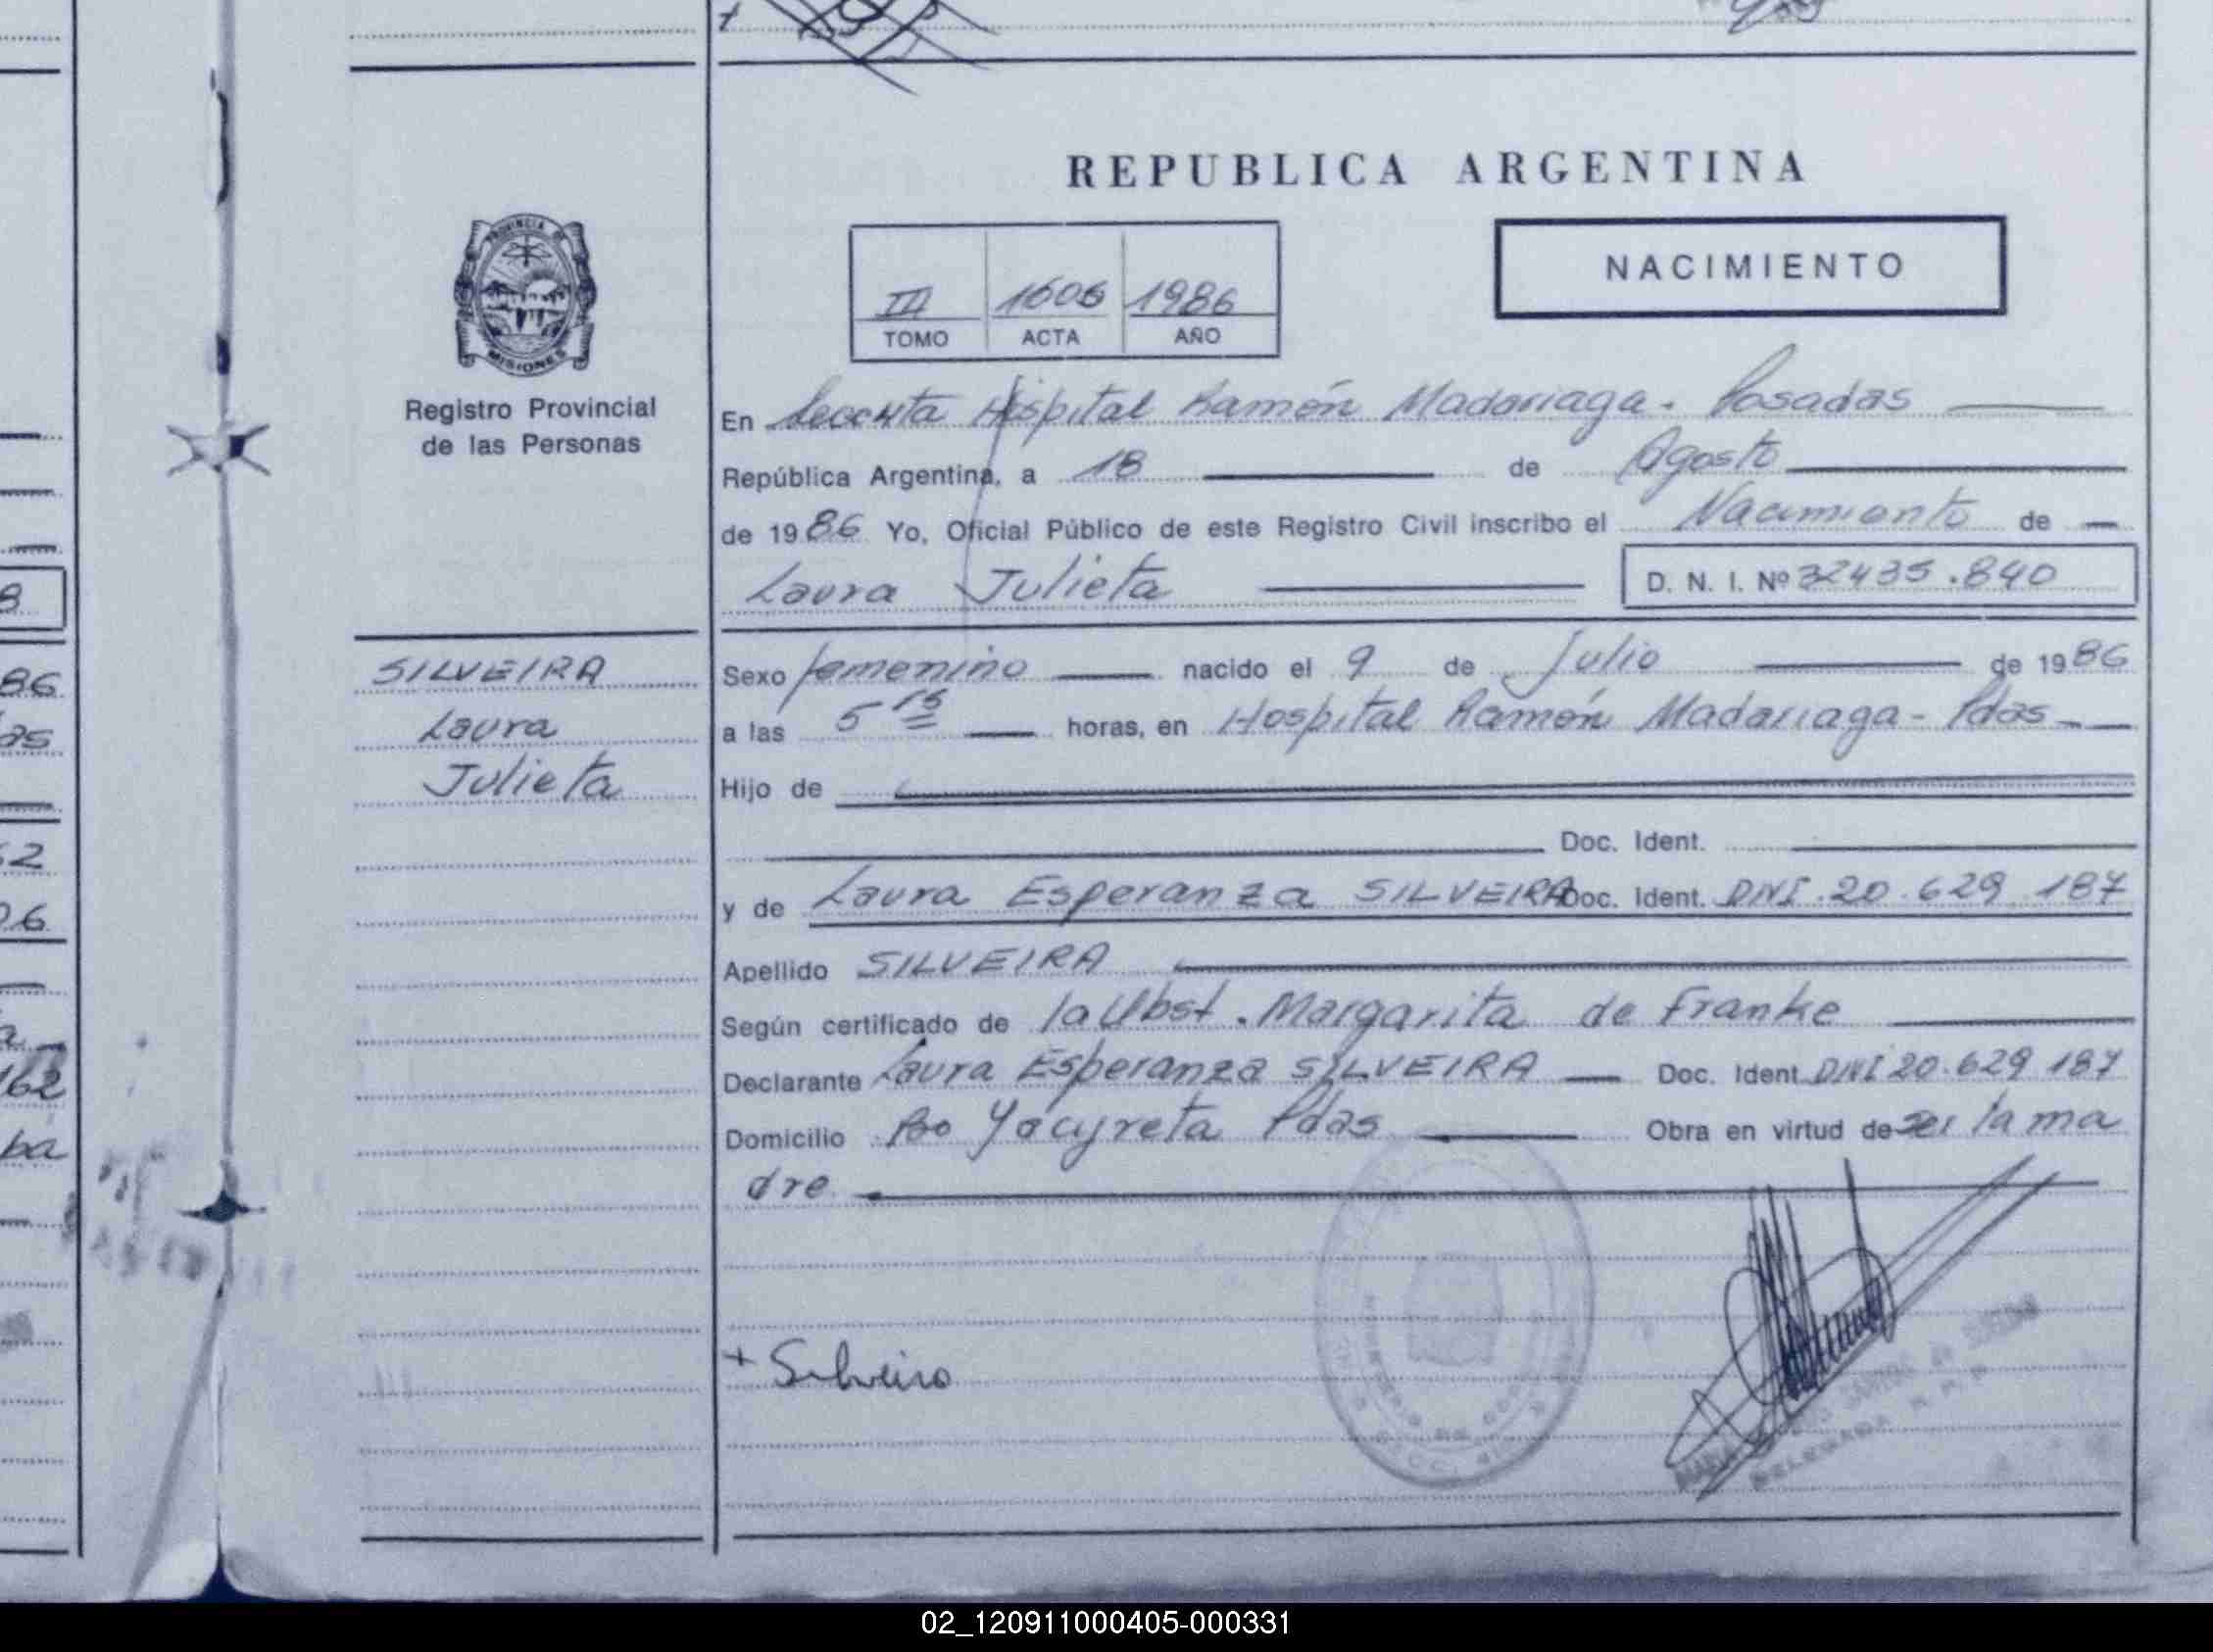 REPUBLICA ARGENTINA
NACIMIENTO
III 1606 1986
TOMO ACTA AÑO
PROVINCIA DE
MISIONES
Registro Provincial
de las Personas
En Hospital Ramón Madariaga - Posadas
República Argentina, a 18 de Agosto
de 1986 Yo, Oficial Público de este Registro Civil inscribo el Nacimiento de
Laura Julieta D. N. I. Nº 32435.840
SILVEIRA
Laura
Julieta
Sexo femenino nacido el 9 de Julio de 1986
a las 5 15 horas, en Hospital Ramón Madariaga - Pdas
Hijo de
Doc. Ident.
y de Laura Esperanza SILVEIRA Doc. Ident. DNI.20.629.187
Apellido SILVEIRA
Según certificado de la Obst. Margarita de Franke
Declarante Laura Esperanza SILVEIRA Doc. Ident. DNI 20.629 187
Domicilio Bo Yacyreta Pdas Obra en virtud de ser la ma
dre
+ Silveira
DELEGADA R. P. P.
8
86
as
62
06
a
162
ba
02_120911000405-000331